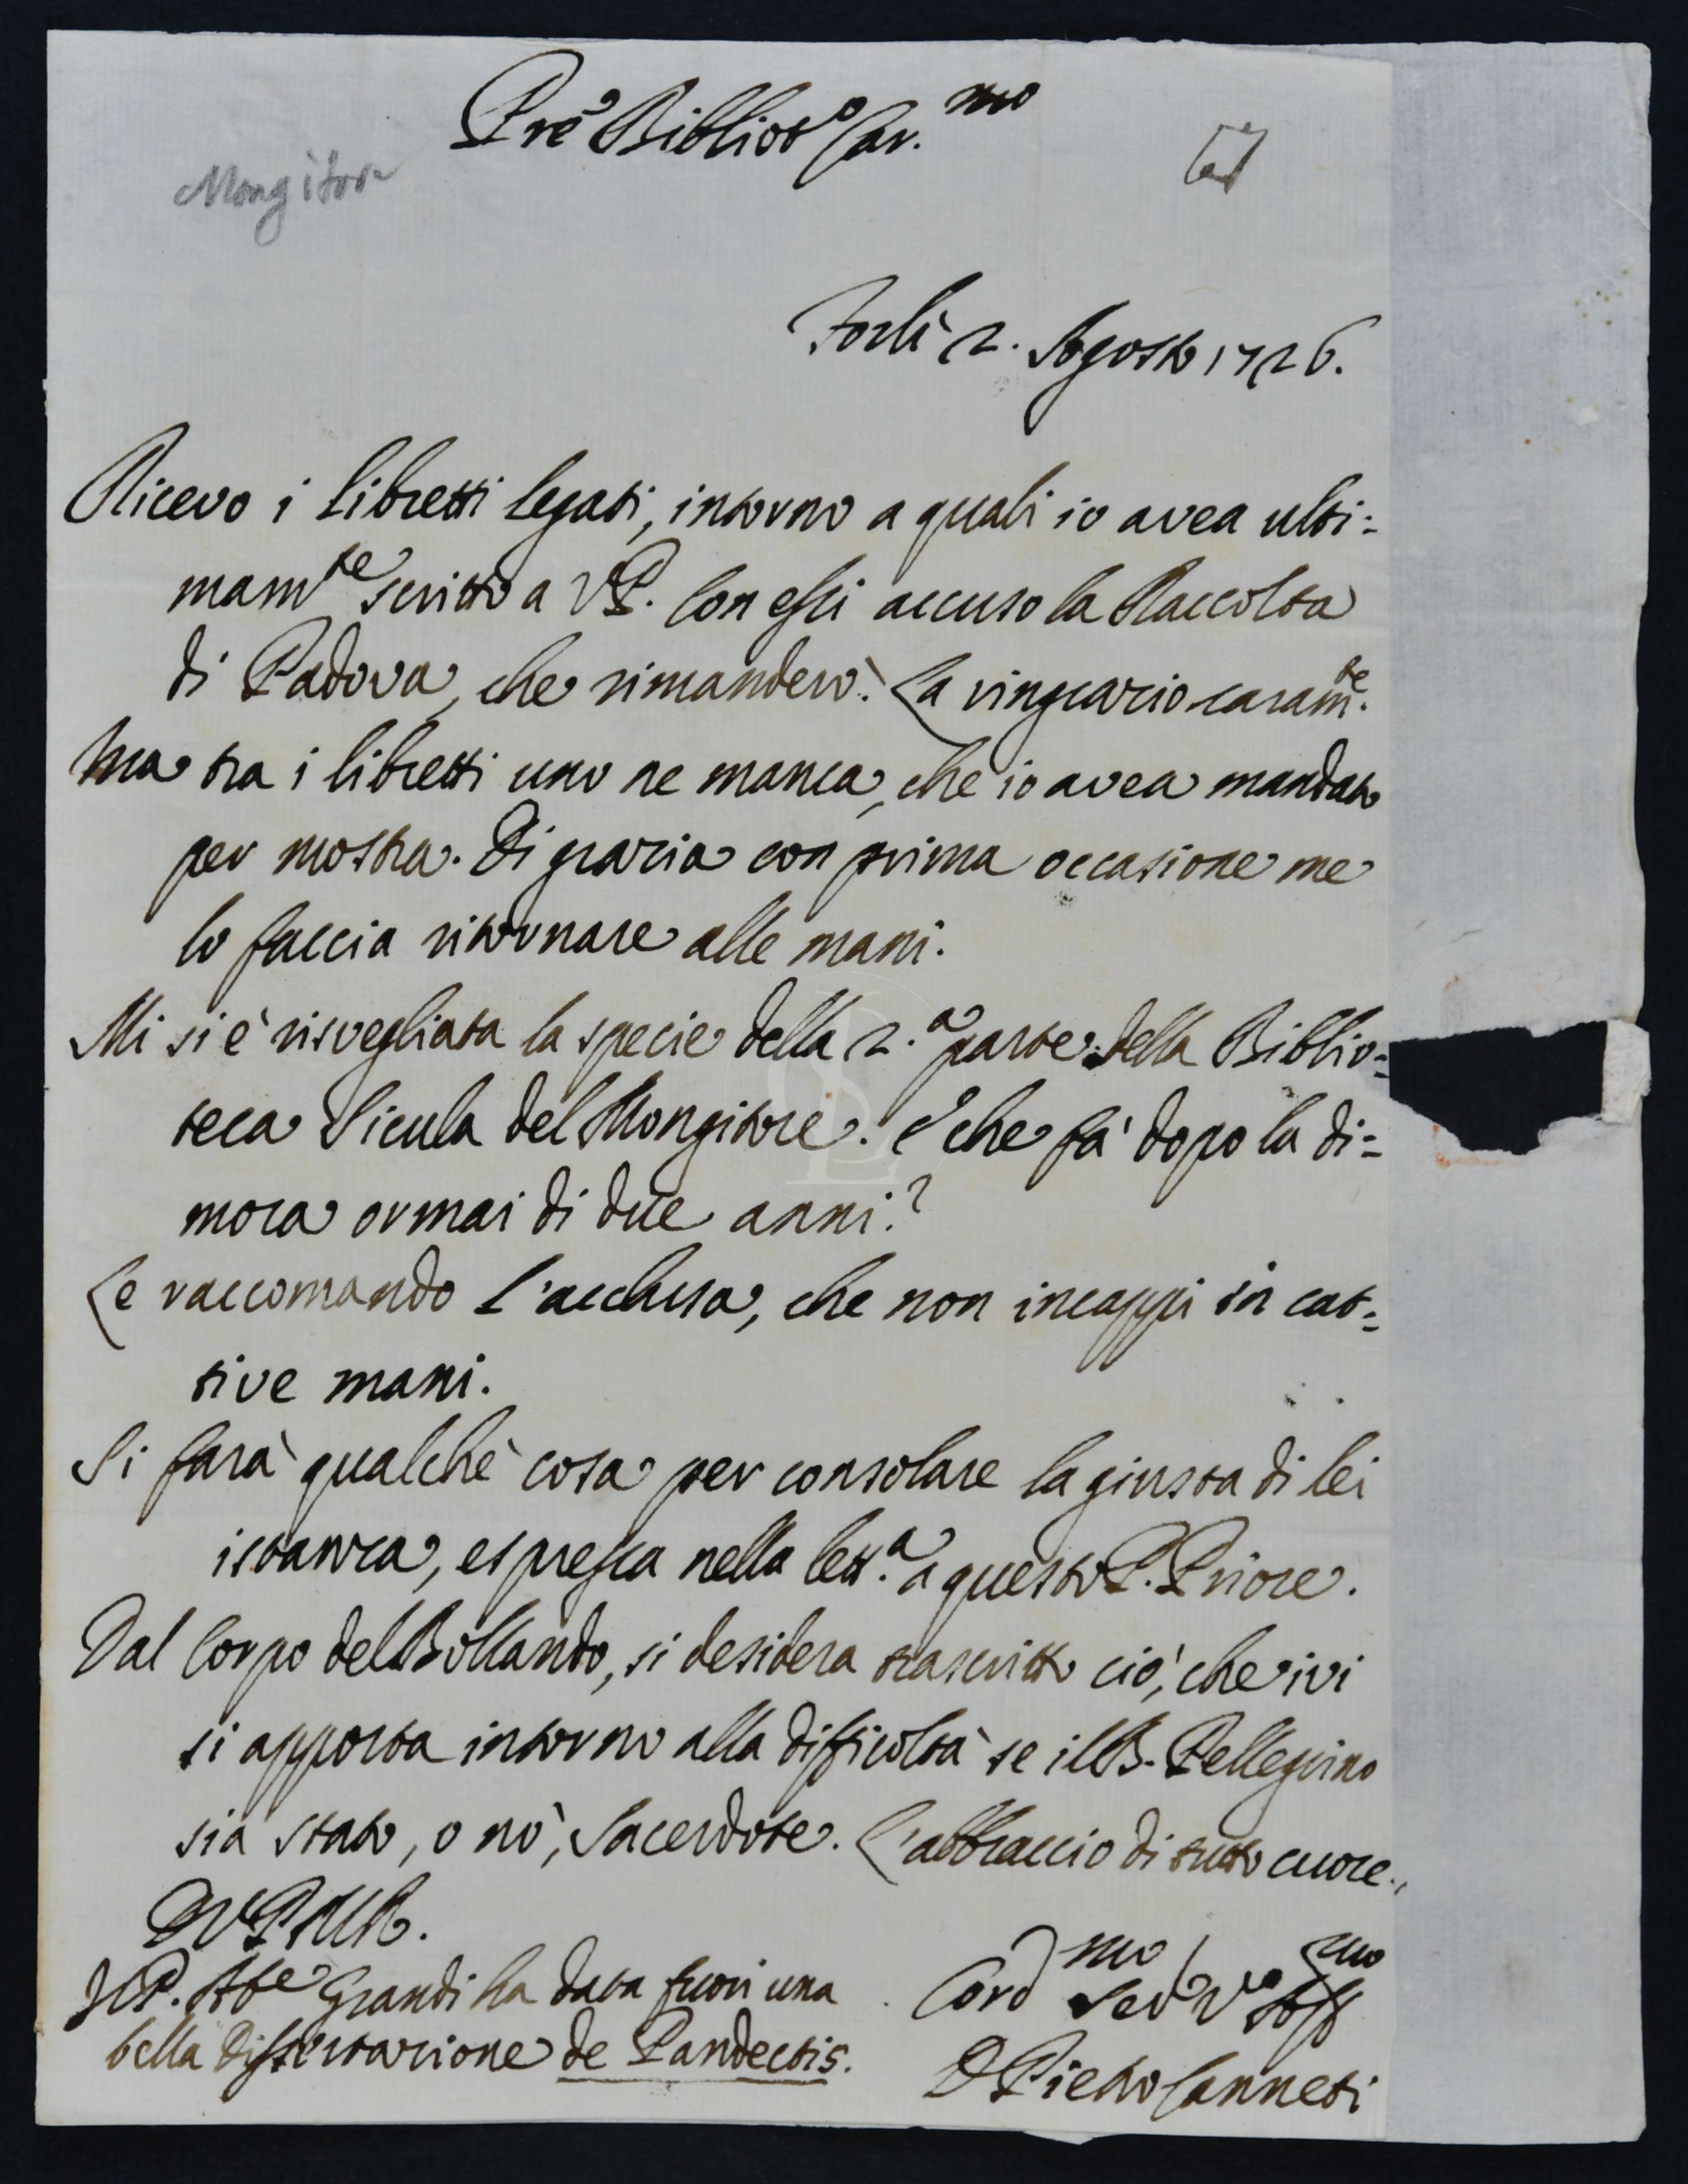 Pre Bibliot.o Car.mo
Mongitor
Forlì 2. Agosto 1726.
Ricevo i libretti legati, intorno a quali io avea ulti=
mam.te scritto a VP. Con essi accuso la Raccolta
di Padova, che rimanderò. La ringrazio caram.te
Ma tra i libretti uno ne manca, che io avea mandato
per mostra. Di grazia con prima occasione me
lo faccia ritornare alle mani.
Mi si è risvegliata la specie della 2.a parte della Biblio=
teca Sicula del Mongitore. E che fà dopo la di=
mora ormai di due anni?
Le raccomando l'acchiusa, che non incappi in cat=
tive mani.
Si farà qualchè cosa per consolare la giusta di lei
istanza, espressa nella lett.a a questo P. Priore.
Dal Corpo del Bollando, si desidera trascritto ciò, che ivi
si apporta intorno alla difficoltà se il B. Pellegrino
sia stato, o nò, Sacerdote. L'abbraccio di tutto cuore.
DVPMR.
Il P. Ab.e Grandi ha data fuori una
bella dissertazione de Pandectis.
Cord.mo Ser.v Vo
D Pietro Canneti